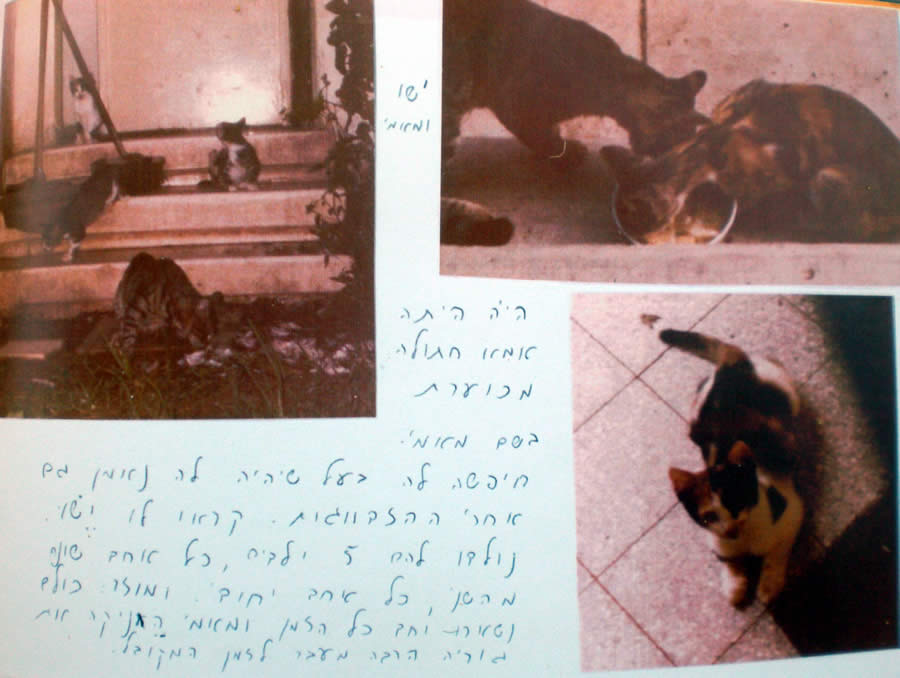 ישו
ומאמי
היה היתה
אמא חתולה
מכוערת
בשם מאמי.
חיפשה לה בעל שיהיה לה נאמן גם
אחרי ההזדווגות. קראו לו ישו.
נולדו להם 5 ילדים, כל אחד שונה
מהשני, כל אחד יחודי. ומוזר: כולם
נשארו יחד כל הזמן ומאמי הניקה את
גוריה הרבה מעבר לזמן המקובל.